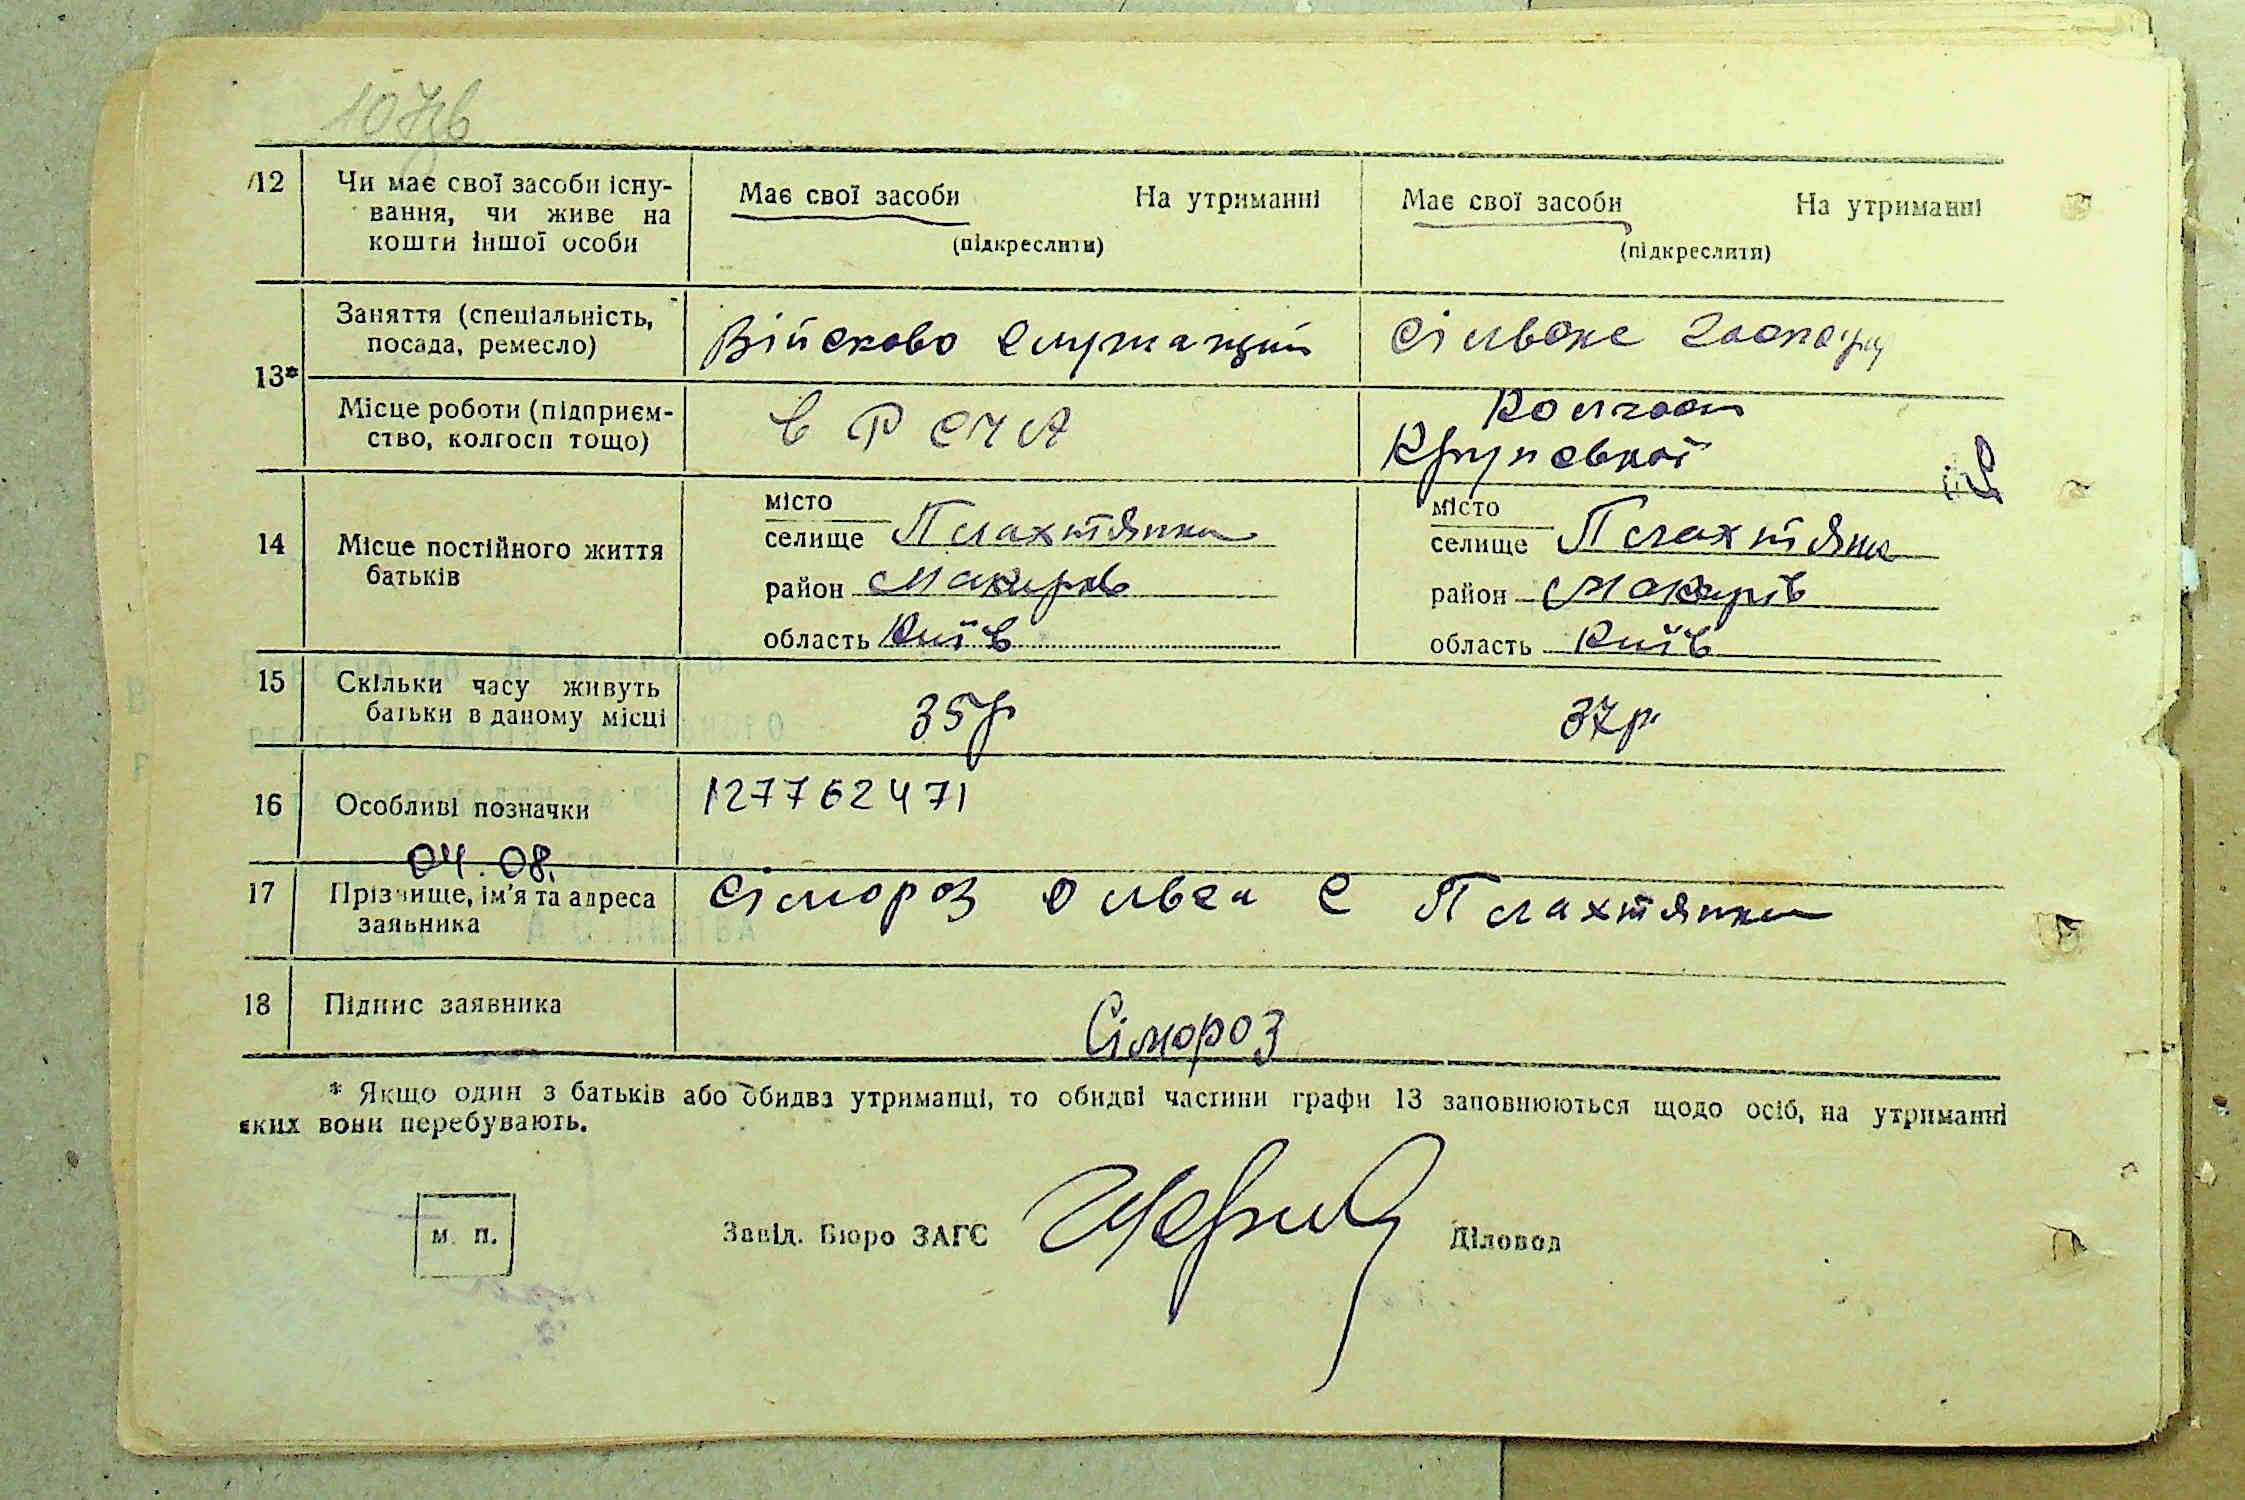 107зв
12 Чи має свої засоби існу- Має свої засоби На утриманні Має свої засоби На утриманні
вання, чи живе на
кошти іншої особи (підкреслити) (підкреслити)
13* Заняття (спеціальність, Військово служащий Сільське
посада, ремесло)
Місце роботи (підприєм- в РСЧА Колгосп
ство, колгосп тощо) Крупської
14 Місце постійного життя батьків
місто місто
селище Плахтянка селище Плахтянка
район Макарів район Макарів
область Київ область Київ
15 Скільки часу живуть 35р 37р.
батьки в даному місці
16 Особливі позначки 127762471
04.08.
17 Прізвище, ім'я та адреса Сімороз Ольга С Плахтянка
заявника
18 Підпис заявника Сімороз
* Якщо один з батьків або обидва утриманці, то обидві частини графи 13 заповнюються щодо осіб, на утриманні
яких вони перебувають.
м. п. Завід. Бюро ЗАГС Діловод